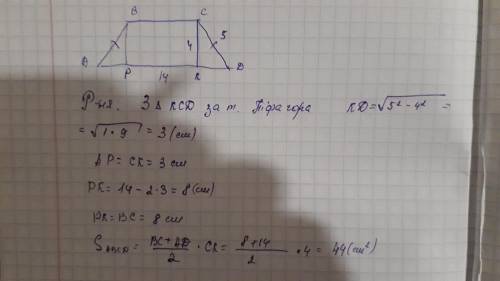 B C
4 5
A P 14 K D
Р-ня. З Δ KCD за т. Піфагора KD = √5² - 4² =
= √1 · 9 = 3 (см)
AP = CK = 3 см
PK = 14 - 2·3 = 8 (см)
PK = BC = 8 см
S ABCD = BC + AD / 2 · CK = 8 + 14 / 2 · 4 = 44 (см²)